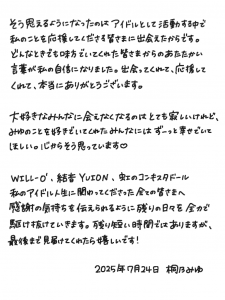 そう思えるようになったのはアイドルとして活動する中で
私のことを応援してくださる皆さまに出会えたからです。
どんなときでも味方でいてくれた皆さまからのあたたかい
言葉が私の自信になりました。出会ってくれて、応援して
くれて、本当にありがとうございます。
大好きなみんなに会えなくなるのはとても寂しいけれど、
みゆのことを好きでいてくれたみんなにはずーっと幸せでいて
ほしい。心からそう思っています♡
WILL-O'、結奏YUION、虹のコンキスタドール
私のアイドル人生に関わってくださった全ての皆さまへ
感謝の気持ちを伝えられるように残りの日々を全力で
駆け抜けていきます。残り短い時間ではありますが、
最後まで見届けてくれたら嬉しいです！
2025年7月24日 桐乃みゆ